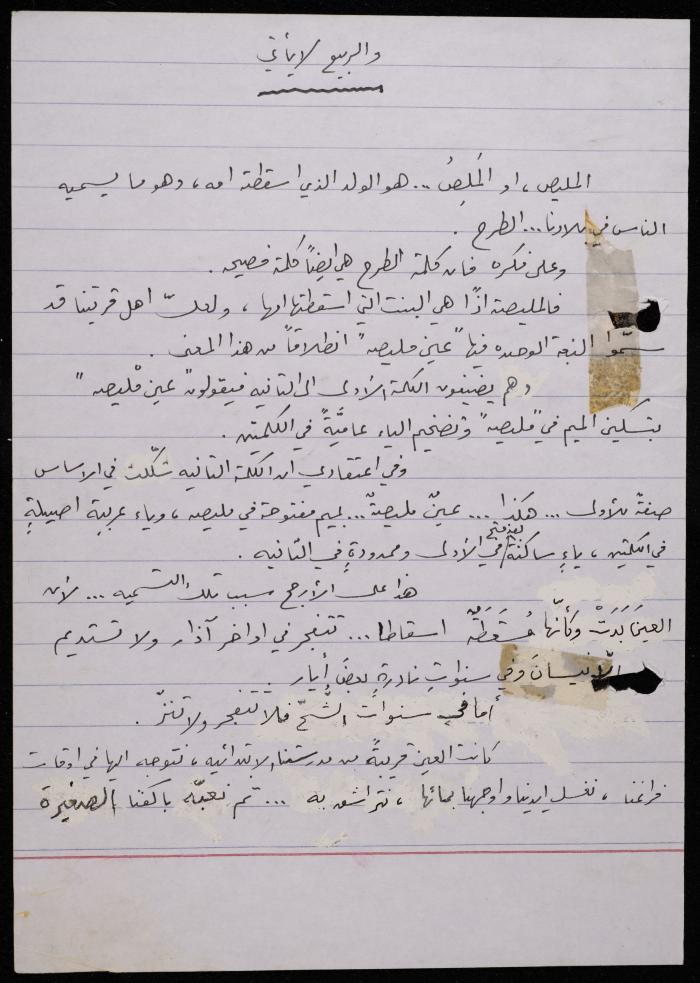 والربيع لا يأتي
المليص ، او المَلِصُ .. هو الولد الذي اسقطته امه ، وهو ما يسميه
الناس في بلادنا ... الطرح .
وعلى فكره فان كلمة الطرح هي ايضاً كلمة فصيحه .
فالمليصة اذًا هي البنت التي اسقطتها امها ، ولعلّ اهل قريتنا قد
سمّوا النبعة الوحيده فيها "عين مليصه" انطلاقاً من هذا المعنى .
وهم يضيفون الكلمة الاولى الى الثانيه فيقولون "عين مْليصه"
بتسكين الميم في "مليصه" وتضخيم الياء عاميَّةً في الكلمتين .
وفي اعتقادي ان الكلمة الثانيه شكّلت في الاساس
صفة للأولى ... هكذا ... عينٌ مليصةٌ .. بميم مفتوحة في مليصه ، وياء عربية اصيلةٍ
في الكلمتين ، ياءٍ ساكنة بعد فتح في الأولى وممدودةٍ في الثانيه .
هذا على الأرجح سبب تلك التسميه ... لأن
العينَ بَدَتْ وكأنّها مُسْقَطَةٌ اسقاطا ... تتفجر في اواخر آذار ولا تستديم
الّا نيسانَ وفي سنواتٍ نادرةٍ بعضَ أيار .
أما في سنوات الشّحّ فلا تتفجر ولا تنزّ .
كانت العين قريبةً من مدرستنا الابتدائيه ، نتوجه اليها في اوقات
فراغنا ، نغسل ايدينا واوجهنا بمائها ، نتراشق به ... ثم نعبّه باكفنا الصغيرة